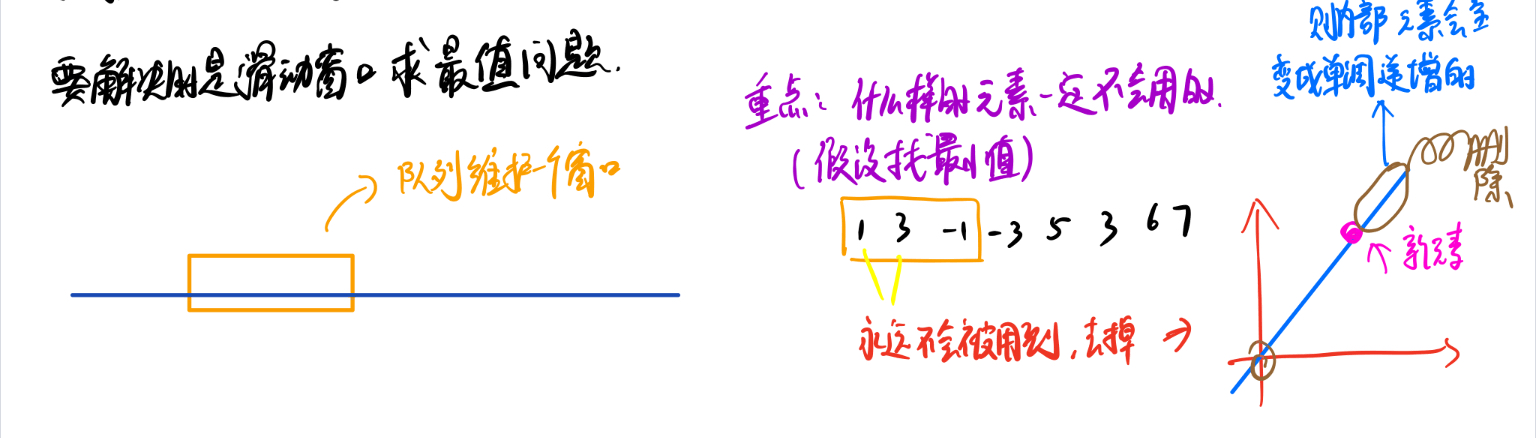 要解决的是滑动窗口求最值问题.
队列维护一个窗口
重点: 什么样的元素一定不会用的.
(假设找最小值)
1 3 -1 -3 5 3 6 7
永远不会被用到,去掉 →
则内部元素会全
变成单调递增的
删
除、
新元素